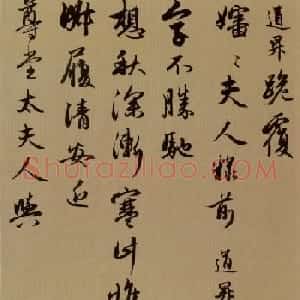 道昇跪覆
嬸〻夫人粧前道昇
字不勝馳
想秋深漸寒計惟
淑履清安近
尊堂太夫人與
Shufaziliao.COM